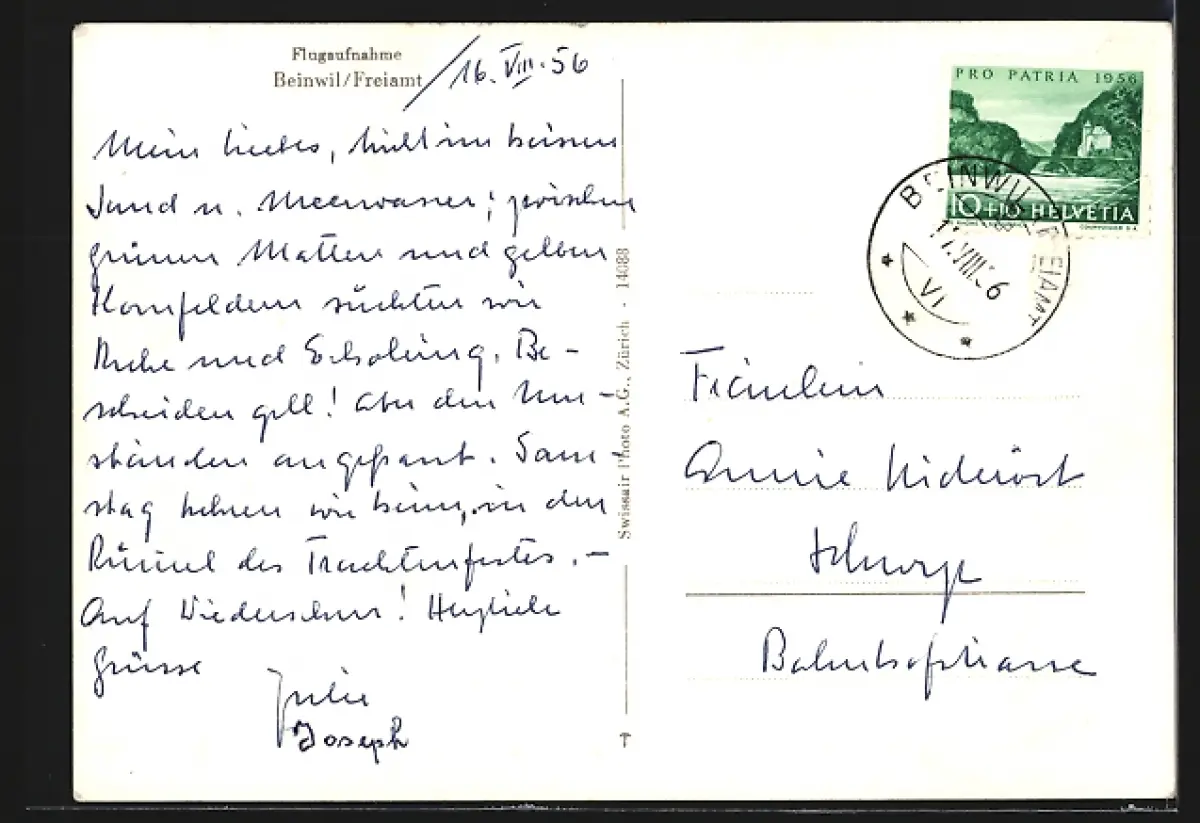 Flugaufnahme
Beinwil/Freiamt
16. VIII. 56
Mein Liebes, nicht im heissen
Sand u. Meerwasser; zwischen
grünen Matten und gelben
Kornfeldern suchten wir
Ruhe und Erholung. Be-
scheiden gell! Aber den Um-
ständen angepasst. Sams-
tag kehren wir heim, in den
Rummel des Trachtenfestes. –
Auf Wiedersehen! Herzliche
Grüsse
Julie
Joseph
Swissair Photo A.G., Zürich . 14088
PRO PATRIA 1956
10+10 HELVETIA
COURVOISIER S.A.
BEINWIL (FREIAMT)
17.VIII.56
VI
Fräulein
Annie Nideröst
Schwyz
Bahnhofstrasse